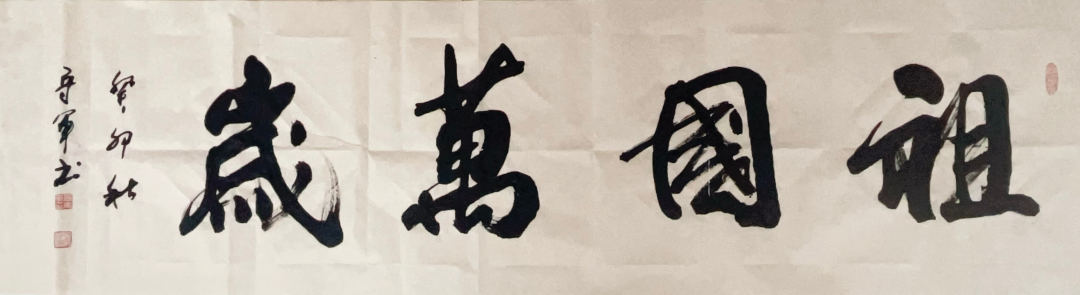 祖國萬歲
癸卯秋
守軍书